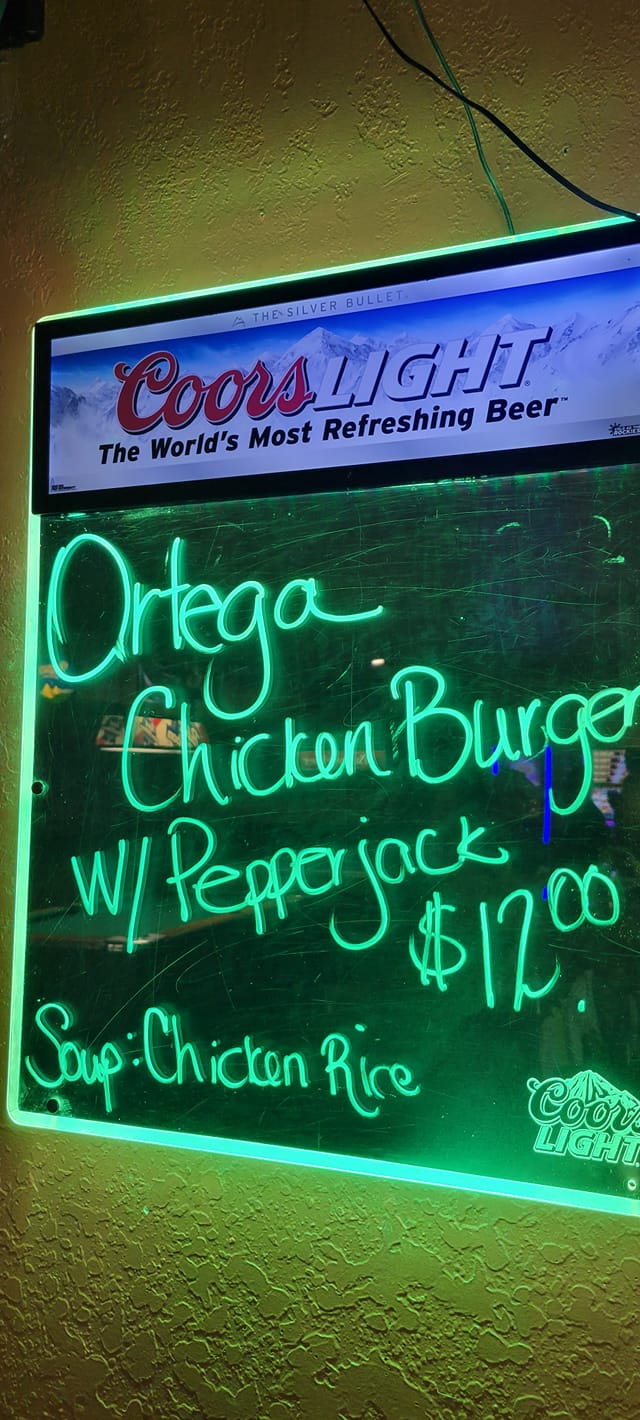 THE SILVER BULLET.
Coors LIGHT
The World's Most Refreshing Beer™
Ortega
Chicken Burger
W/ Pepperjack
$12.00
Soup: Chicken Rice
Coors
LIGHT